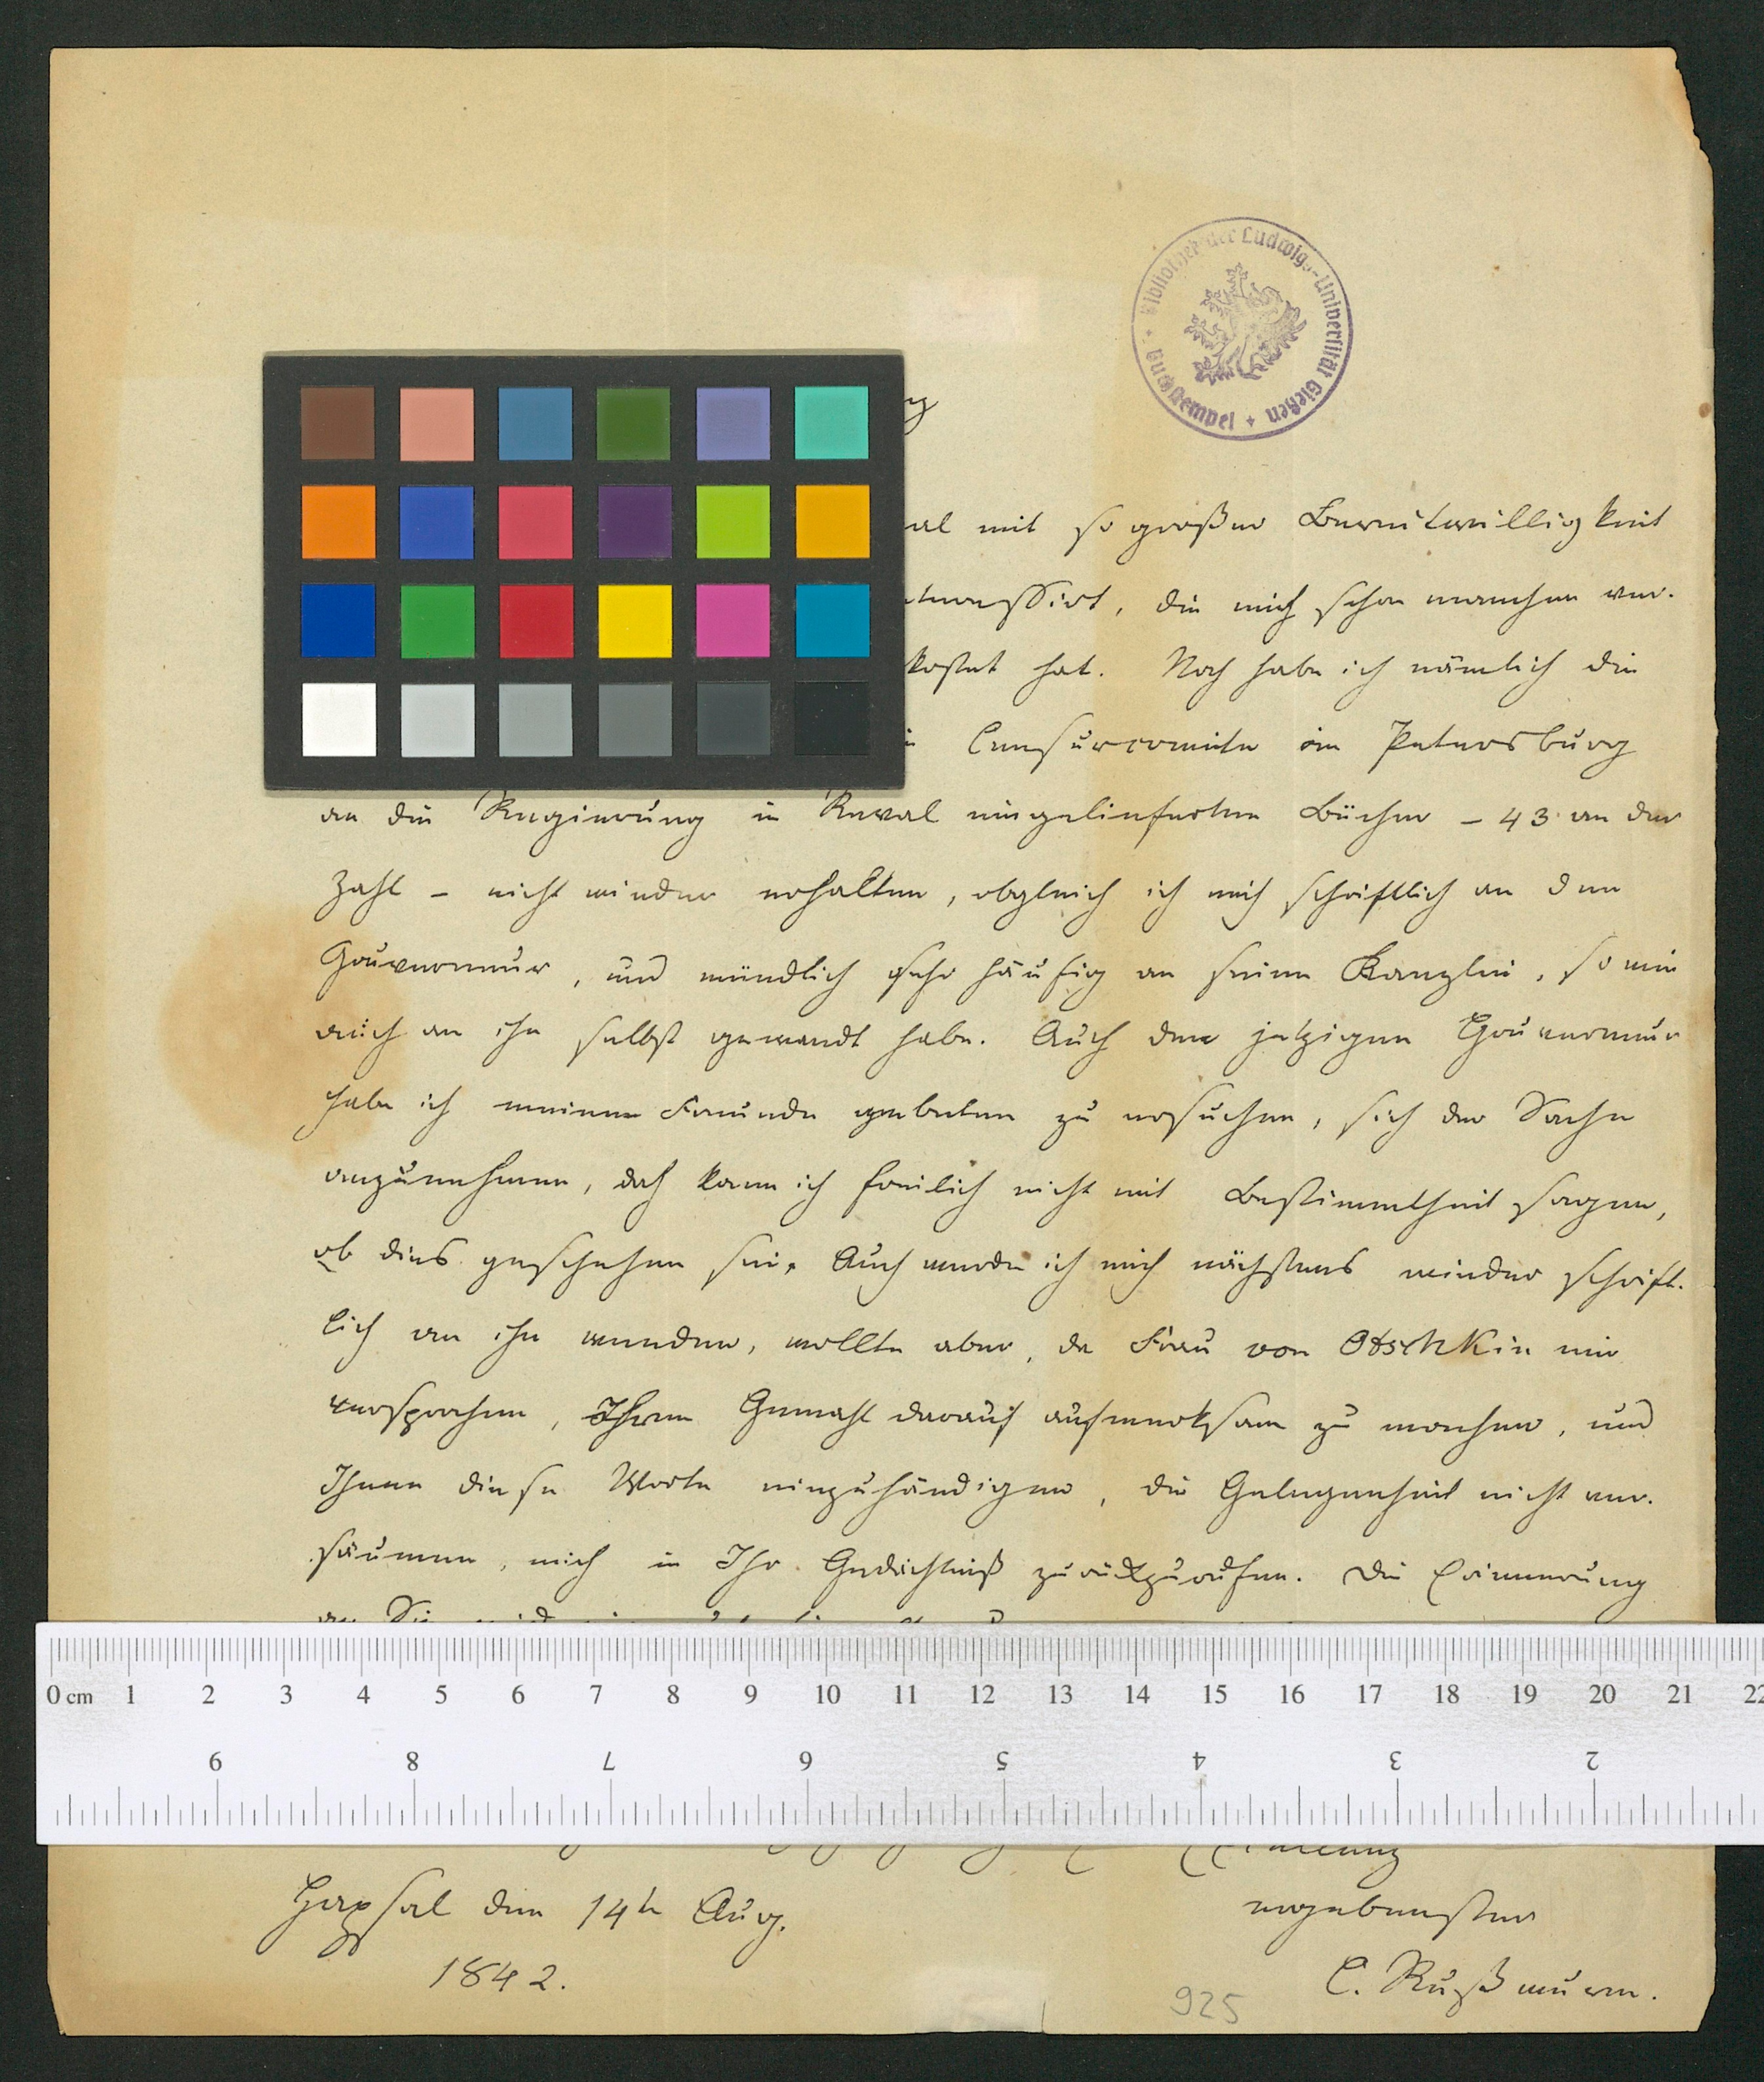 Bibliothek der Ludwigs-Universität Gießen + Buchstempel +
mit so großer Bereitwilligkeit
die mich schon manchen
kostet hat. Noch habe ich nämlich die
Censurcomite in Petersburg
an die Regierung in Reval eingelieferten Bücher – 43 an der
Zahl – nicht wieder erhalten, obgleich ich mich schriftlich an den
Gouverneur, und mündlich sehr häufig an seine Kanzlei, so wie
auch an ihn selbst gewandt habe. Auch den jetzigen Gouverneur
habe ich meinen Freunde gebeten zu ersuchen, sich der Sache
anzunehmen, doch kann ich freilich nicht mit Bestimmtheit sagen,
ob dies geschehen sei. Auch werde ich mich nächstens wieder schrift-
lich an ihn wenden, wollte aber, da Frau von Otschkin mir
versprochen, Ihren Gemahl darauf aufmerksam zu machen, und
Ihnen diese Worte einzuhändigen, die Gelegenheit nicht ver-
säumen, mich in Ihr Gedächtniß zurückzurufen. Die Erinnerung
an Sie wird
0 cm 1 2 3 4 5 6 7 8 9 10 11 12 13 14 15 16 17 18 19 20 21 22
9 8 7 6 5 4 3 2
Hapsal den 14t Aug.
1842.
ergebenster
C. Rußwurm.
925